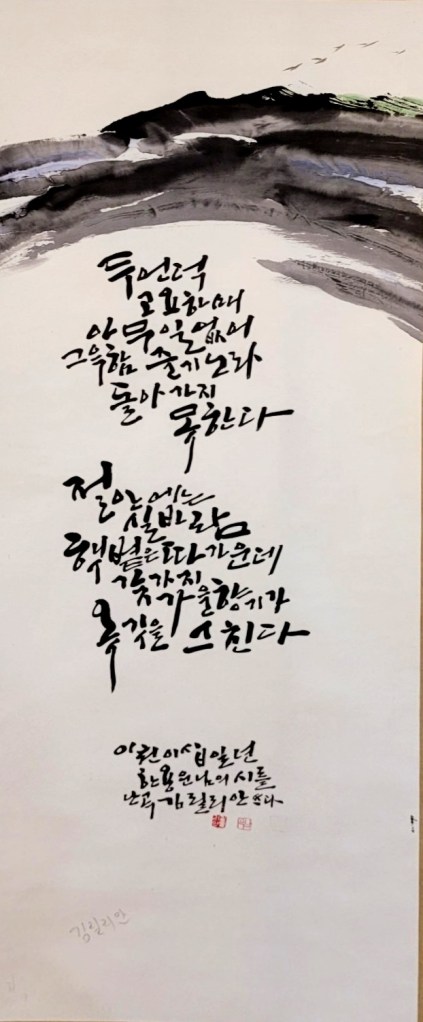 두언덕
고요하매
아무일없어
그윽함 즐기노라
돌아가지
못한다
절안에는
실바람
햇볕은따가운데
갖가지
가을향기가
옷깃을 스친다
이천이십일년
한용운님의 시를
난곡 김릴리안 쓰다
김릴리안